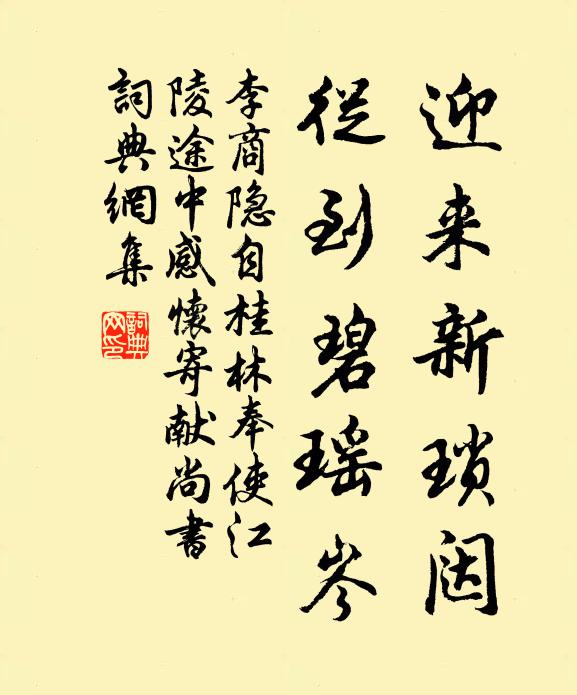 迎来新琐闼
従到碧瑶岑
李商隐自桂林奉使江
陵途中感懷寄献尚書
詞典網集
詞典网印